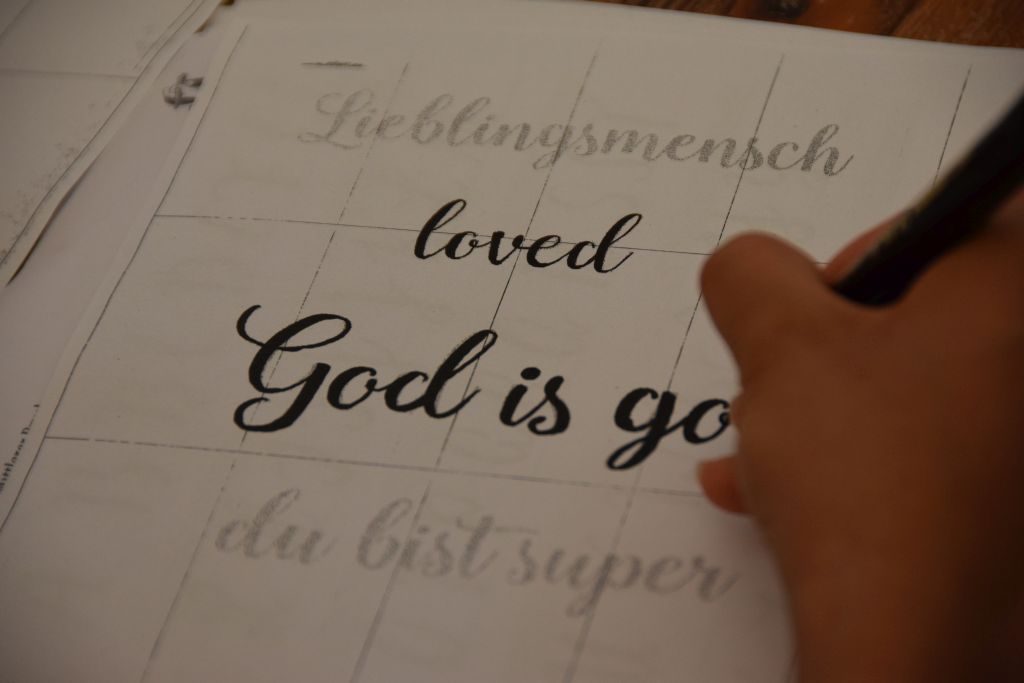 Lieblingsmensch
loved
God is go
du bist super